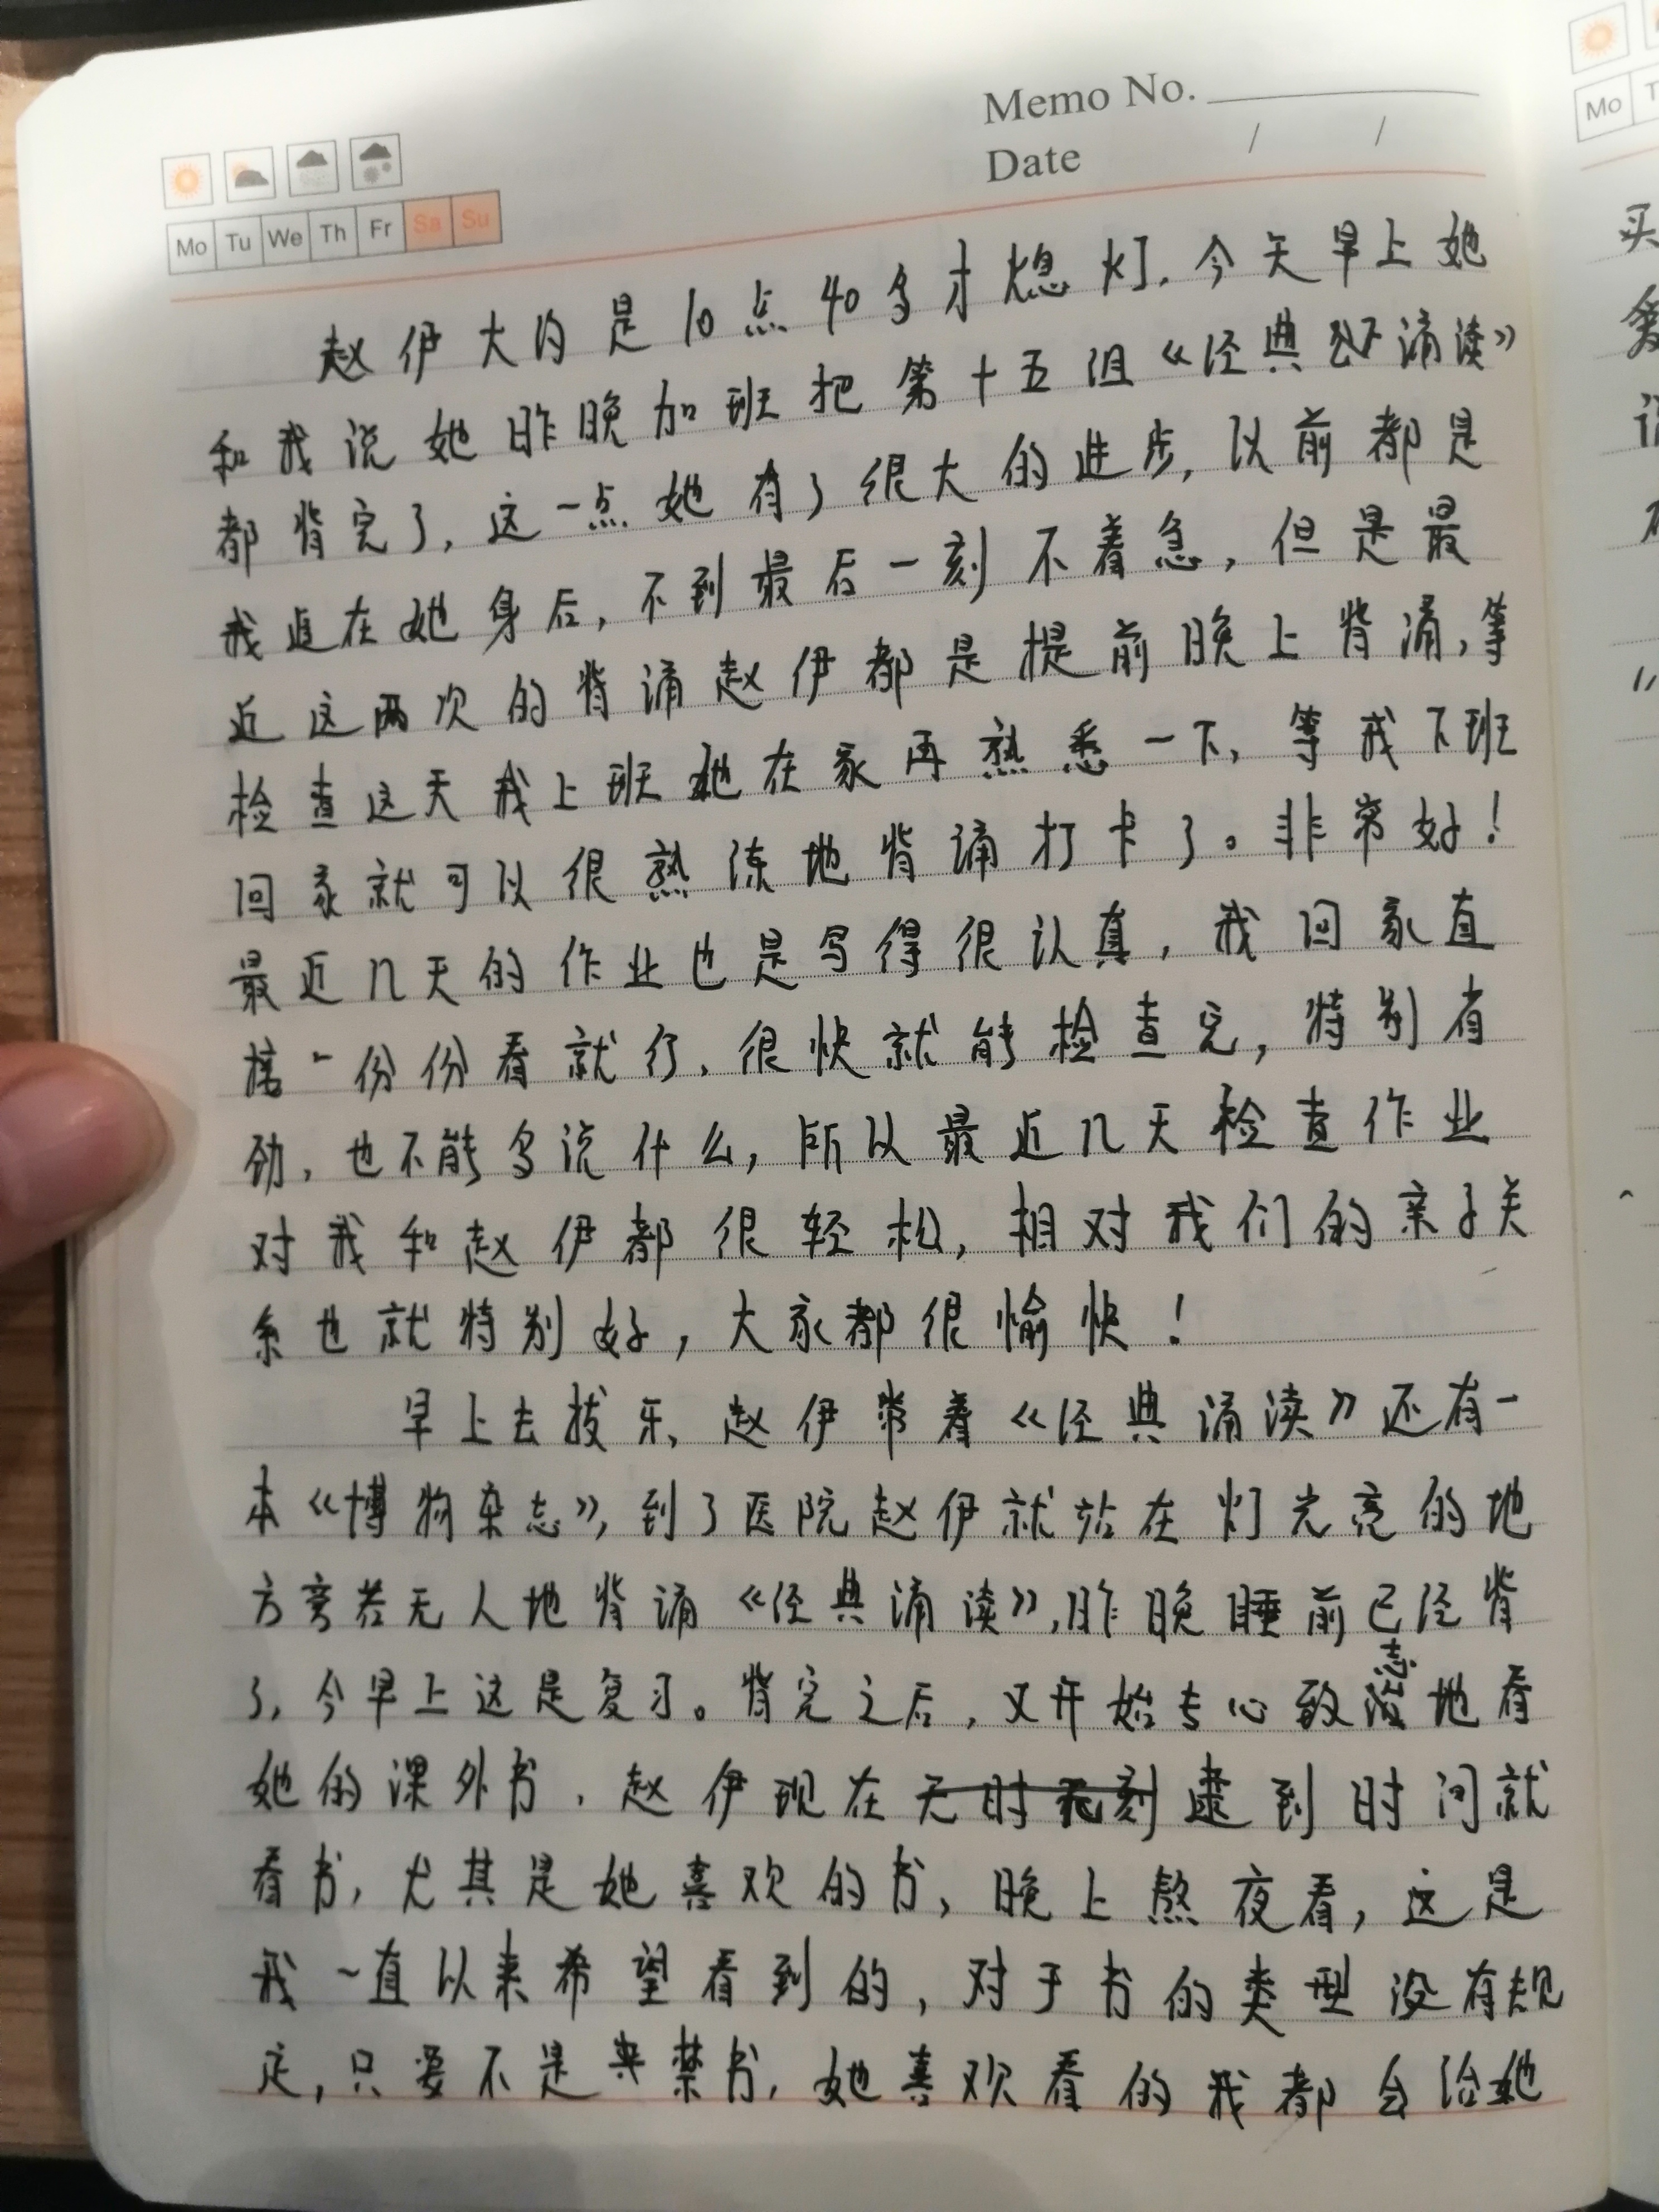 Memo No.
Date / /
Mo Tu We Th Fr Sa Su
赵伊大约是10点40多才熄灯,今天早上她
和我说她昨晚加班把第十五组《经典诵读》
都背完了,这一点她有了很大的进步,以前都是
我追在她身后,不到最后一刻不着急,但是最
近这两次的背诵赵伊都是提前晚上背诵,等
检查这天我上班她在家再熟悉一下,等我下班
回家就可以很熟练地背诵打卡了。非常好!
最近几天的作业也是写得很认真,我回家直
接一份份看就行,很快就能检查完,特别有
劲,也不能多说什么,所以最近几天检查作业
对我和赵伊都很轻松,相对我们的亲子关
系也就特别好,大家都很愉快!
早上去拔牙,赵伊带着《经典诵读》还有一
本《博物杂志》,到了医院赵伊就站在灯光亮的地
方旁若无人地背诵《经典诵读》,昨晚睡前已经背
了,今早上这是复习。背完之后,又开始专心致志地看
她的课外书,赵伊现在无时无刻逮到时间就
看书,尤其是她喜欢的书,晚上熬夜看,这是
我一直以来希望看到的,对于书的类型没有规
定,只要不是禁书,她喜欢看的我都会给她
Mo
买